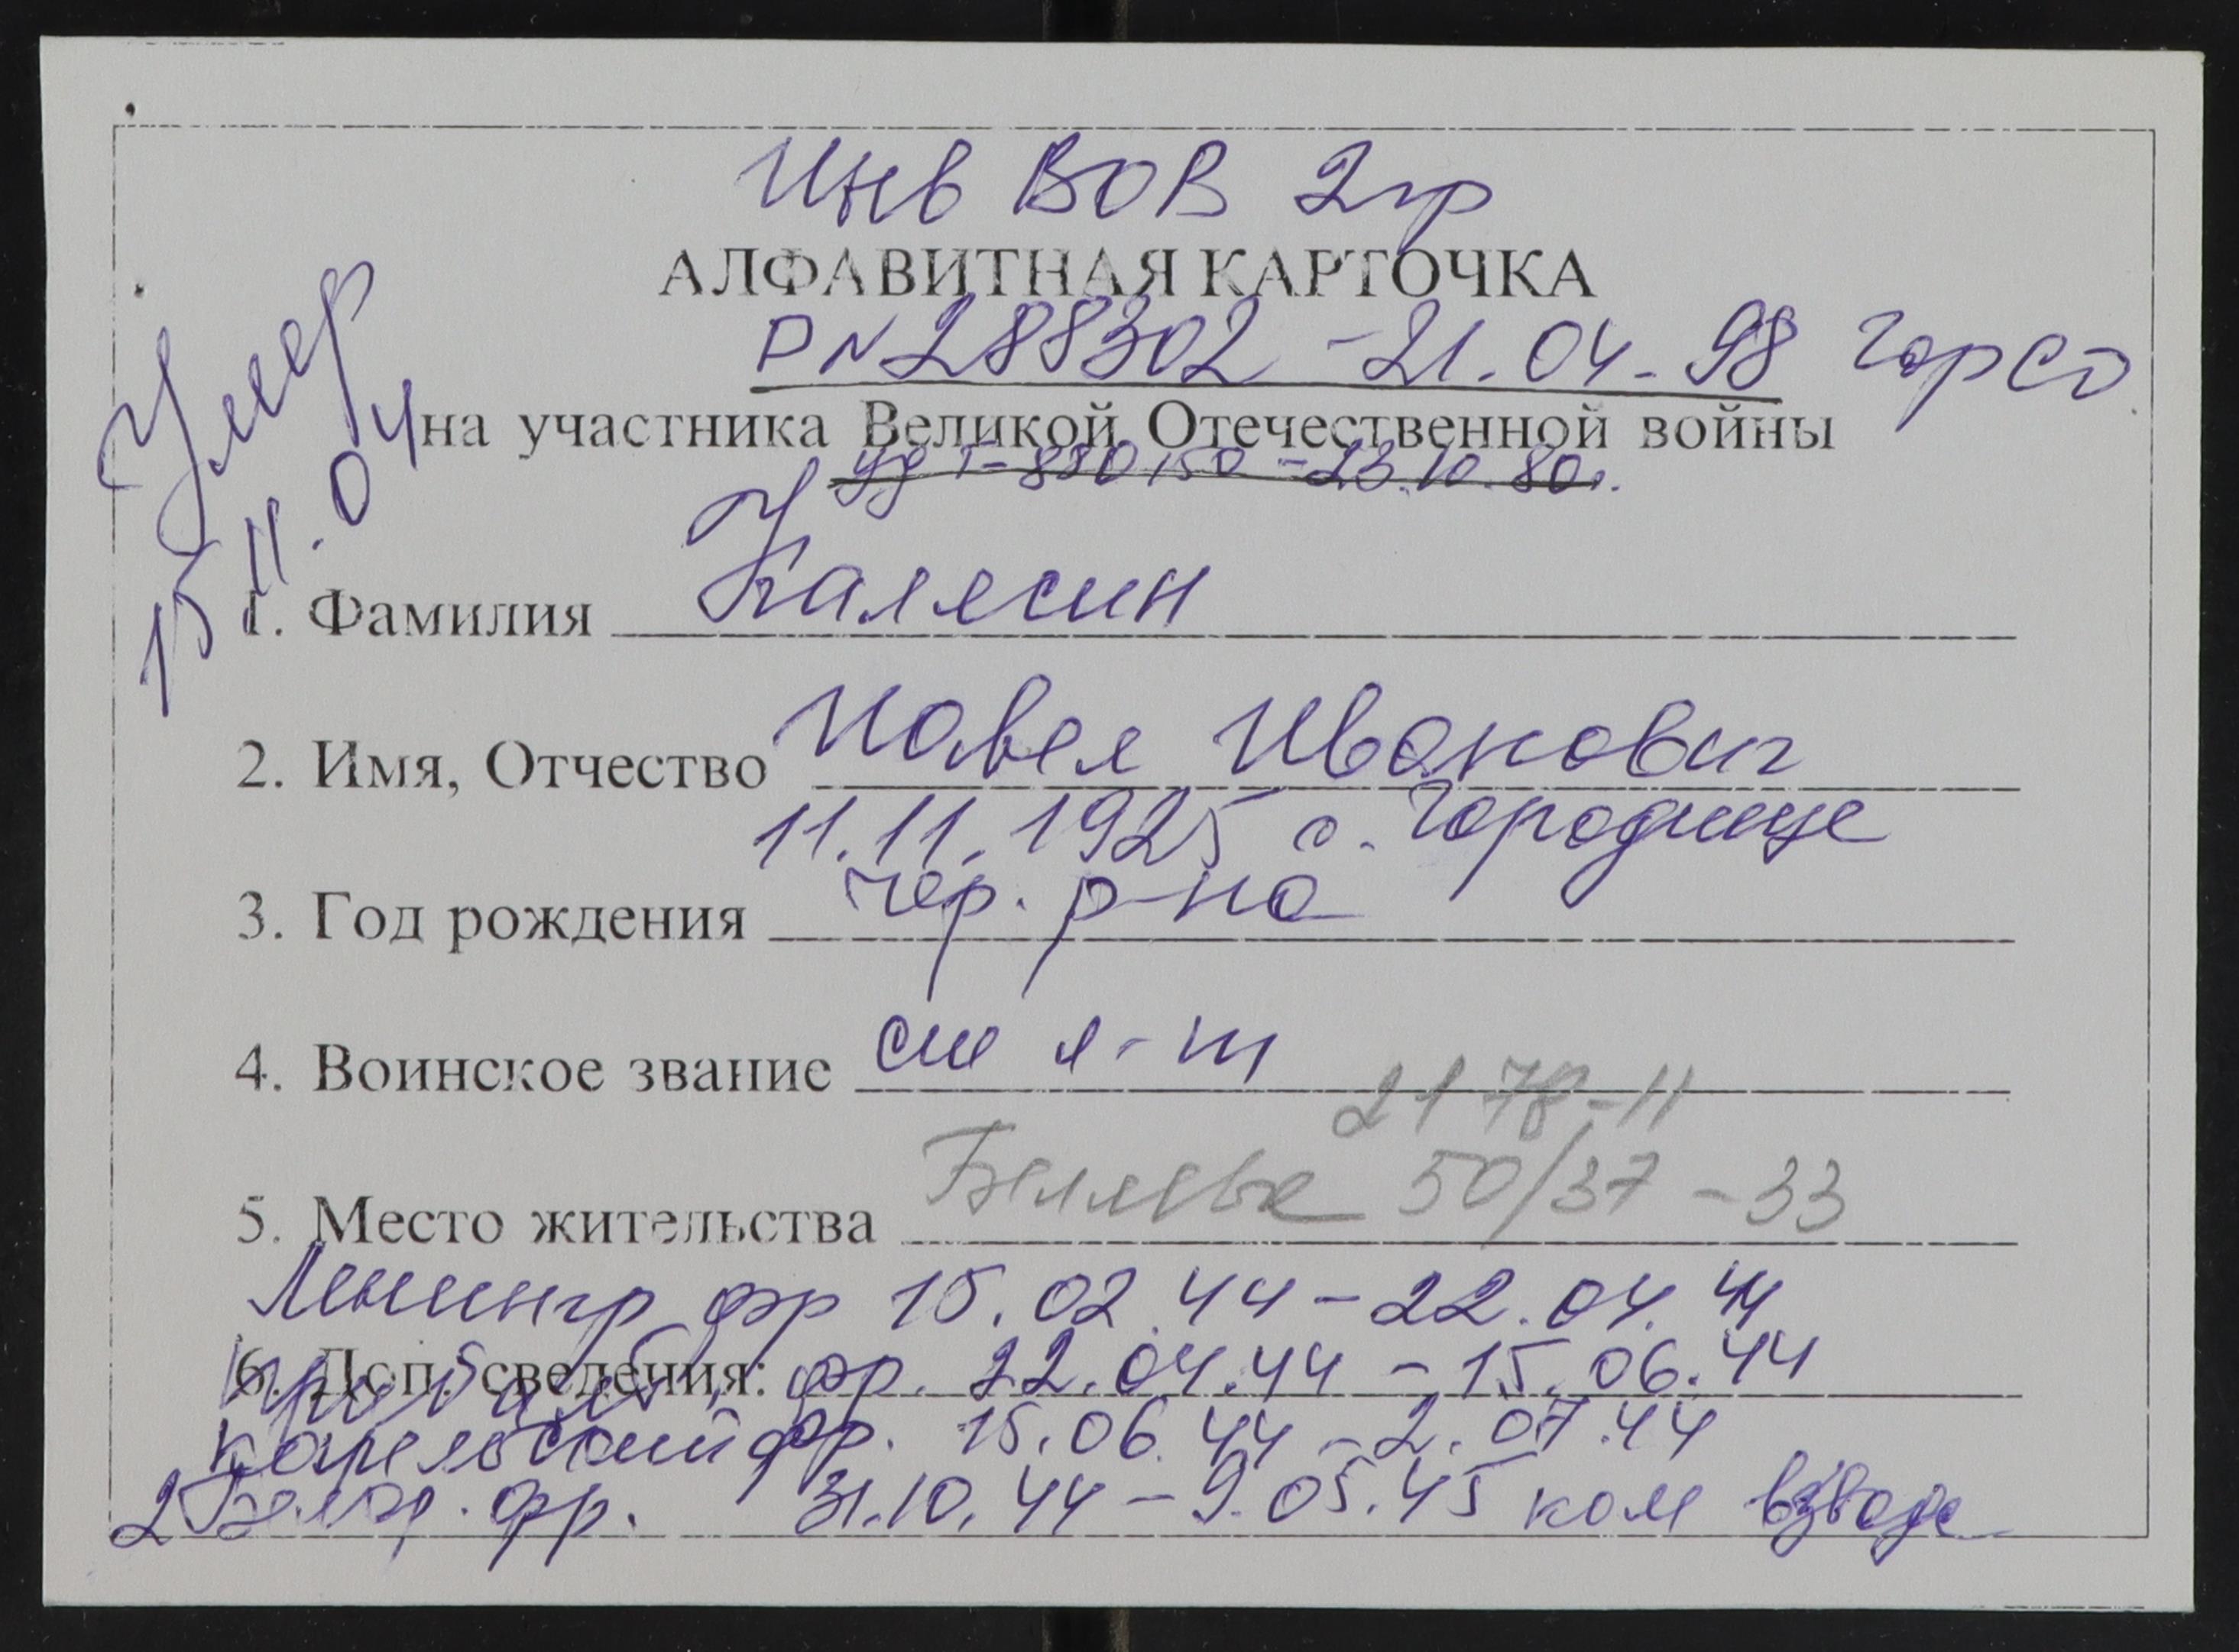 Инв ВОВ 2гр
АЛФАВИТНАЯ КАРТОЧКА
Р N 288302 - 21.04.98 Горсо
Умер
15.11.04
на участника Великой Отечественной войны
23.10.80г.
1. Фамилия Калясин
2. Имя, Отчество Павел Иванович
11.11.1925 с. Городище
3. Год рождения Чер. р-на
4. Воинское звание л-т
21 78-11
5. Место жительства Беляева 50/37 - 33
Ленингр фр 15.02.44 - 22.04.44
6. Доп. сведения: фр. 22.04.44 - 15.06.44
Карельский фр. 15.06.44 - 2.07.44
2 Белор. фр. 31.10.44 - 9.05.45 ком взвода